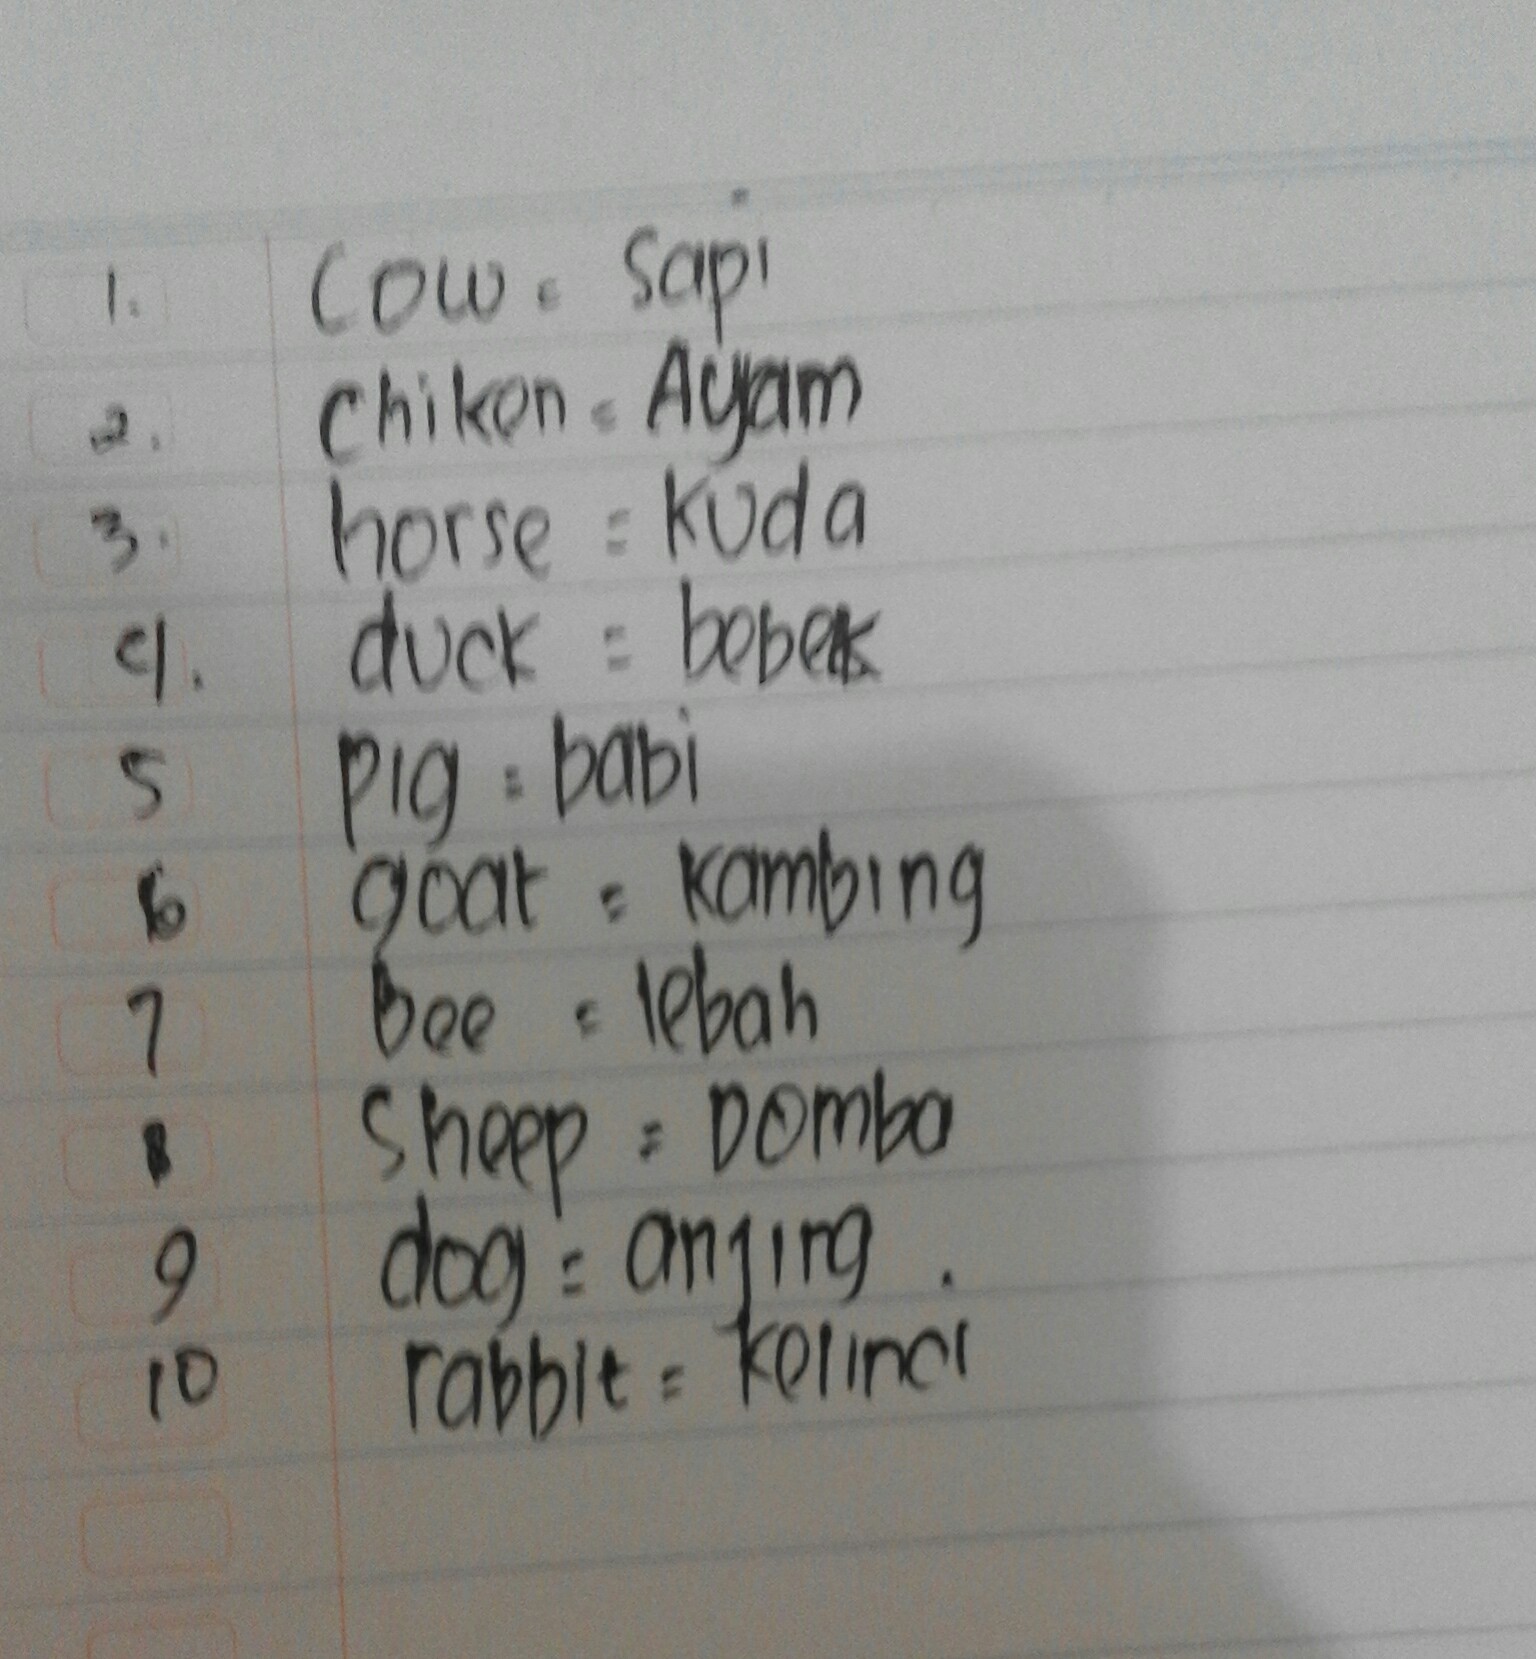 1. Cow = Sapi
2. Chiken = Ayam
3. horse = kuda
4. duck = bebek
5 pig = babi
6 goat = kambing
7 bee = lebah
8 Sheep = Domba
9 dog = anjing .
10 rabbit = kelinci